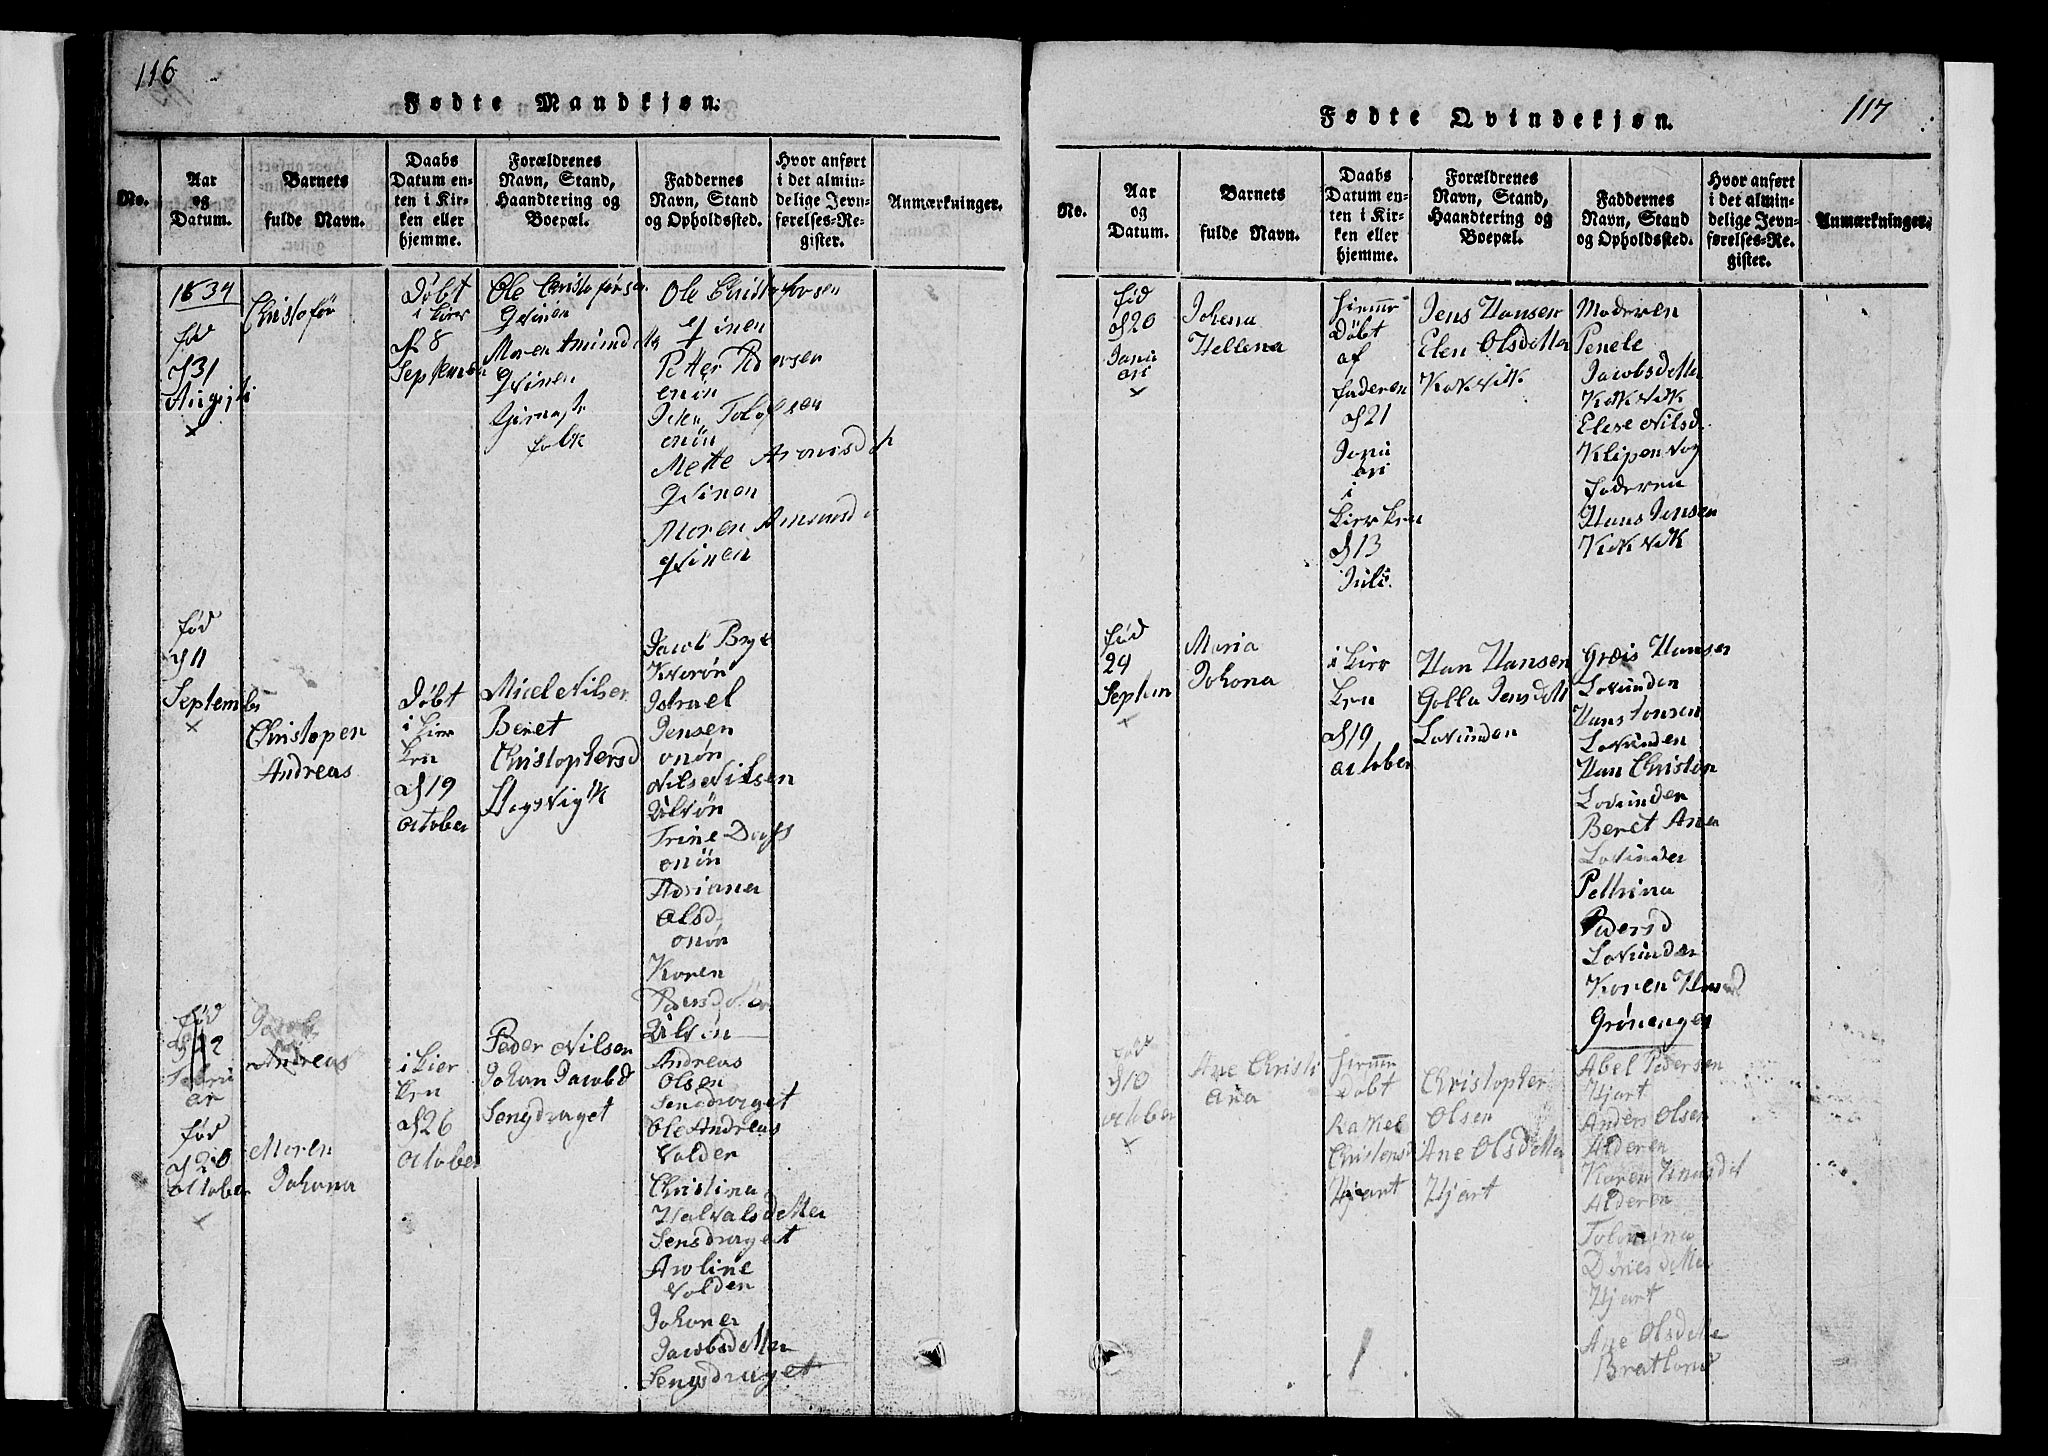 116
Fødte Mandkjøn.
No.
Aar
og
Datum.
Barnets
fulde Navn.
Daabs
Datum en-
ten i Kir-
ken eller
hjemme.
Forældrenes
Navn, Stand,
Haandtering og
Boepæl.
Faddernes
Navn, Stand
og Opholdssted.
Hvor anført
i det almin-
delige Jevn-
førelses-Re-
gister.
Anmærkninger.
1834
fød
d 31
Augusti
×
Christofør
Døbt
i Kier
d 8
September
Ole Christofersen
Qvinen
Moren Amundatter
Qvinen
folk
Ole Christofersen
Qvinen
Petter Pedersen
onøn
onøn
Mette
Qvinen
Moren Amund
Qvinen
fød
d 11
Septembr
×
Christopen
Andreas
Døbt
i Kier
ken
d 19
october
Micel Nilsen
Beret
Christophersd
Jacob
Kvarøn
Istrael
Jensen
onøn
Nils Nilsen
Trine
onøn
Adriana
olsd
onøn
Karen
fød
d 12
Andreas
fød
d 20
october
×
Moren
Johana
i Kier
ken
d 26
october
Peder Nilsen
Johan Jacobd
Sengdraget
Andreas
Olsen
Sensdraget
Ole Andreas
Valden
Christina
Halvalsdetter
Sensdraget
Aroline
Volden
Johaner
Jacobsdetter
Sengsdraget
117
Fødte Qvindekjøn.
No.
Aar
og
Datum.
Barnets
fulde Navn.
Daabs
Datum en-
ten i Kir-
ken eller
hjemme.
Forældrenes
Navn, Stand,
Haandtering og
Boepæl.
Faddernes
Navn, Stand
og Opholdssted.
Hvor anført
i det almin-
delige Jevn-
førelses-Re-
gister.
Anmærkninger.
fød
d 20
Janu
ari
×
Johena
Hellena
hiemme
Døbt
af
faderen
d 21
Janu
ari
i
Kierken
d 13
Juli.
Jens Hansen
Elen Olsdetter
Kokvik
Moderen
Penele
Jacobsdetter
Kokvik
Elese Nilsd
Klipenvog
faderen
Hans Jensen
Kokvik
fød
24
Septem
×
Maria
Johana
i Kier
ken
d 19
october
Han Hansen
Golla Jensdett
Lovunden
Græis Hansen
Lovunden
Hans Jonsen
Lovunden
Han Christian
Lovunden
Beret Ana
Lovunden
Pethrina
Pedersd
Lovunden
Karen Hansd
Grønenget
fød
d 10
october
×
Ane Christi
ana
hiemme
døbt
Rakel
Christensd
Hjart
Christopher
Olsen
Ane Olsdetter
Hjart
Abel Pedersen
Hjart
Anders Olsen
Alderen
Karen Knusdet
Alderen
Hjart
Ane Olsdetter
Bratland